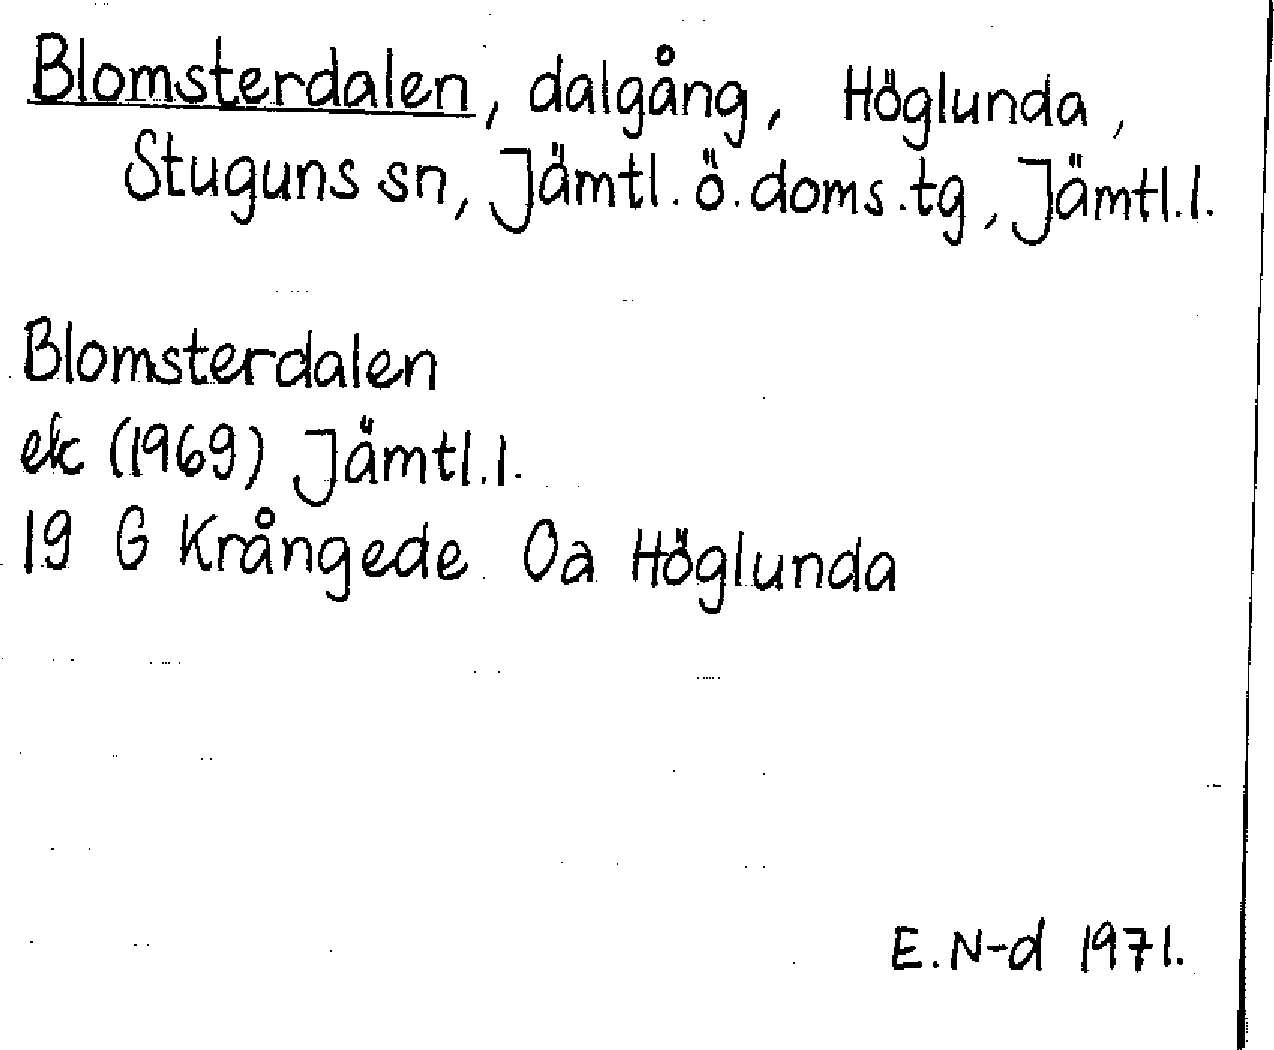 Blomsterdalen, dalgång, Höglunda,
Stuguns sn, Jämtl. ö. doms. tg, Jämtl. l.
Blomsterdalen
ek (1969) Jämtl. l.
19 G Krångede Oa Höglunda
E. N-d 1971.